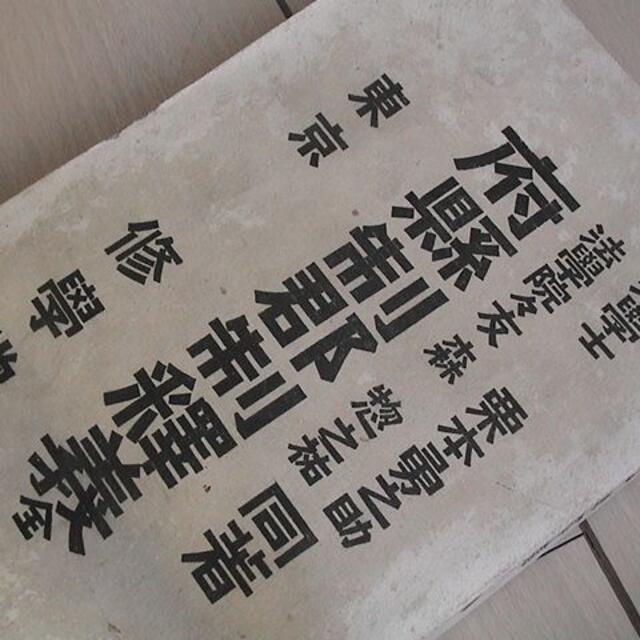 學士 栗本勇之助
法學院々友 森 惣之祐
同著
府縣制郡制釋義 全
東京 修學